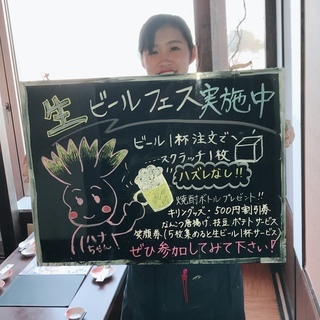 生ビールフェス実施中
ビール1杯注文で
スクラッチ1枚
ハズレなし!!
焼酎ボトルプレゼント!!
キリングッズ・500円割引券
なんこつ唐揚げ、枝豆、ポテトサービス
笑顔券(5枚集めると生ビール1杯サービス)
ぜひ参加してみて下さい!
ハナちゃん